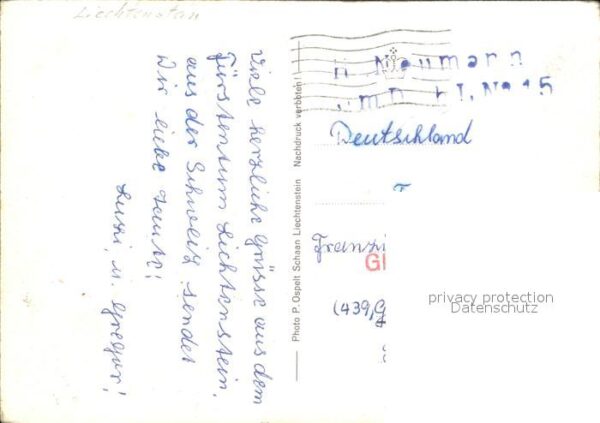 Liechtenstein
Viele herzliche Grüsse aus dem
Fürstentum Lichtenstein.
aus der Schweiz sendet
Wir liebe Tante!
u. Gregor!
Photo P. Ospelt Schaan Liechtenstein Nachdruck verboten!
H. Neumann
No 15
Deutschland
Franzi
Gl
(439,G
privacy protection
Datenschutz